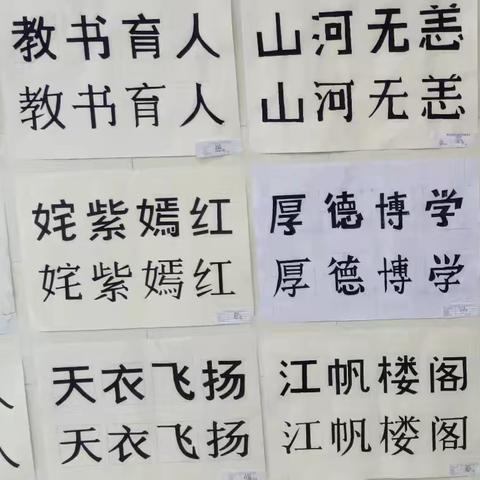 教书育人
教书育人
山河无恙
山河无恙
姹紫嫣红
姹紫嫣红
厚德博学
厚德博学
天衣飞扬
天衣飞扬
江帆楼阁
江帆楼阁
人
人